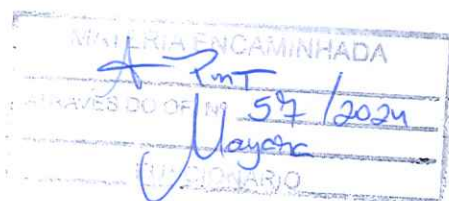 MATERIA ENCAMINHADA
A PmT
ATRAVÉS DO OF. Nº 57/2024
Mayara
FUNCIONÁRIO